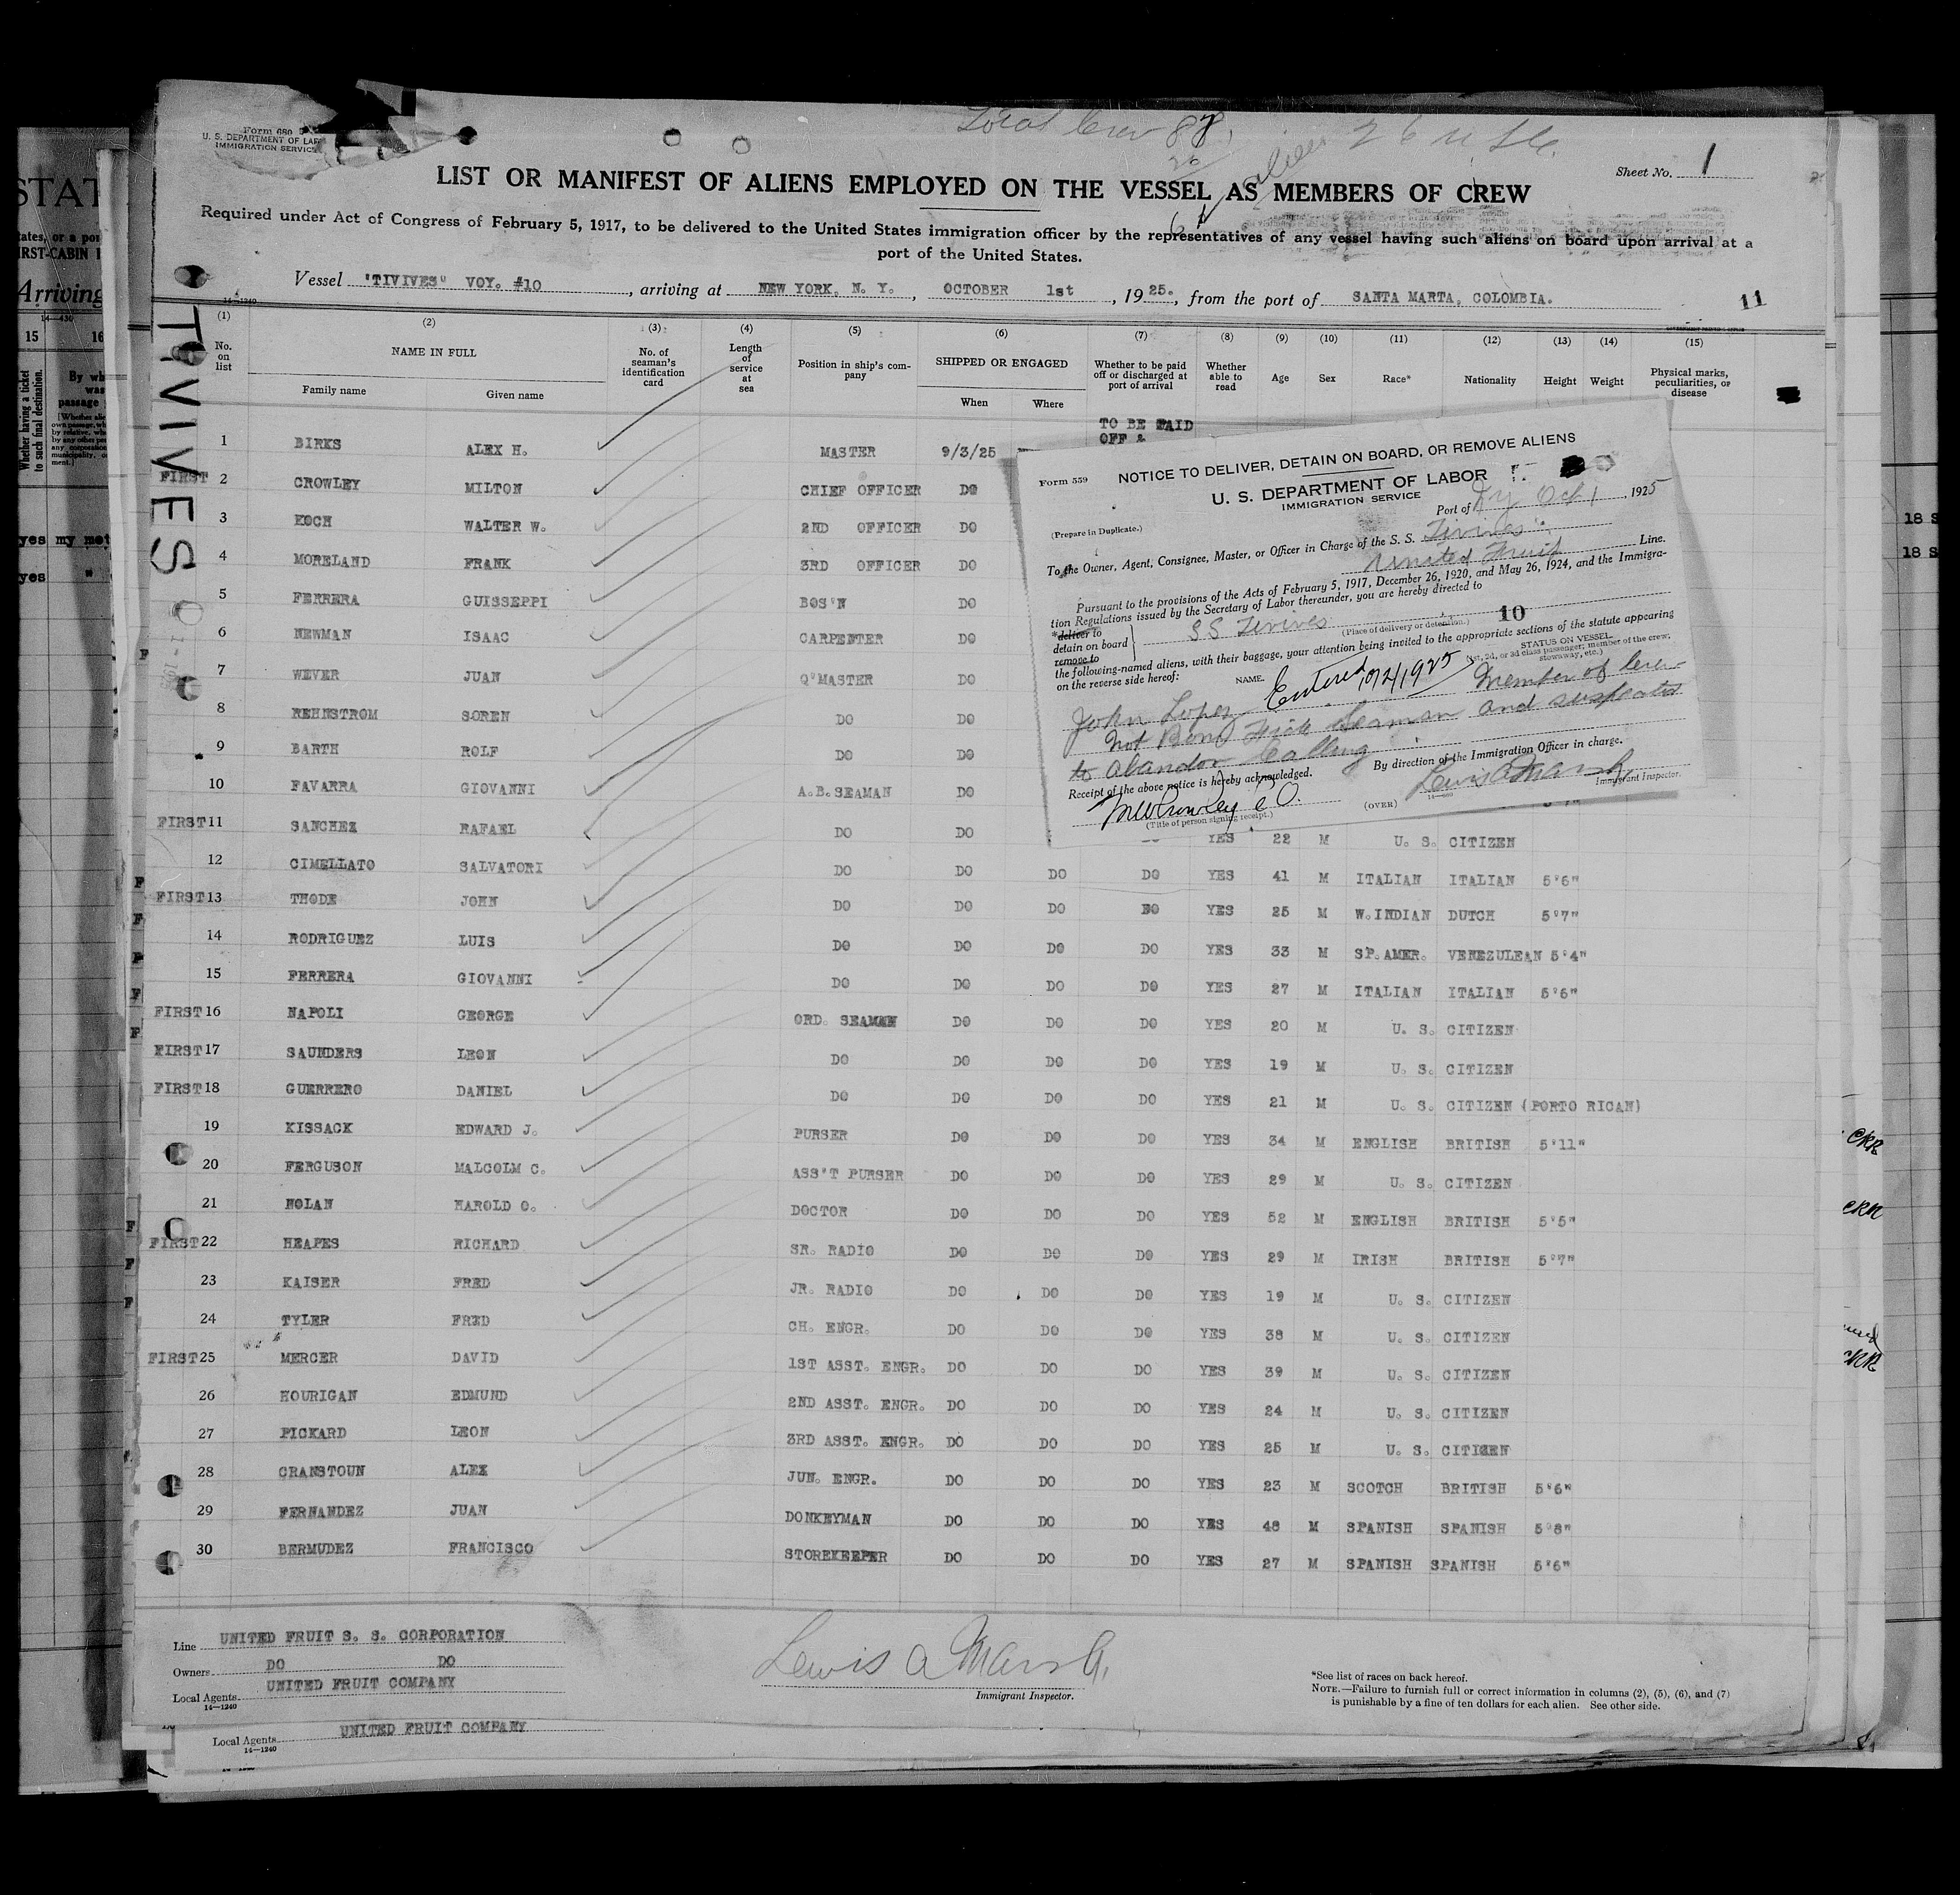 Form 680
U. S. DEPARTMENT OF LAB
IMMIGRATION SERVICE
Total Crew 88
26 U.S.C.
aliens
Sheet No. 1
LIST OR MANIFEST OF ALIENS EMPLOYED ON THE VESSEL AS MEMBERS OF CREW
Required under Act of Congress of February 5, 1917, to be delivered to the United States immigration officer by the representatives of any vessel having such aliens on board upon arrival at a
port of the United States.
Vessel "TIVIVES" VOY. #10, arriving at NEW YORK. N. Y., OCTOBER 1st, 1925., from the port of SANTA MARTA, COLOMBIA.
11
14—1240
TIVIVES
(1) (2) (3) (4) (5) (6) (7) (8) (9) (10) (11) (12) (13) (14) (15)
No. on list NAME IN FULL No. of seaman's identification card Length of service at sea Position in ship's company SHIPPED OR ENGAGED Whether to be paid off or discharged at port of arrival Whether able to read Age Sex Race* Nationality Height Weight Physical marks, peculiarities, or disease
Family name Given name When Where
TO BE PAID
OFF &
1 BIRKS ALEX H. MASTER 9/3/25
FIRST 2 CROWLEY MILTON CHIEF OFFICER DO
3 KOCH WALTER W. 2ND OFFICER DO
4 MORELAND FRANK 3RD OFFICER DO
5 FERRERA GUISSEPPI BOS'N DO
6 NEWMAN ISAAC CARPENTER DO
7 WEVER JUAN Q'MASTER DO
8 REHNSTROM SOREN DO DO
9 BARTH ROLF DO DO
10 FAVARRA GIOVANNI A.B.SEAMAN DO
FIRST 11 SANCHEZ RAFAEL DO DO YES 22 M U. S. CITIZEN
12 CIMELLATO SALVATORI DO DO DO DO YES 41 M ITALIAN ITALIAN 5'6"
FIRST 13 THODE JOHN DO DO DO DO YES 25 M W.INDIAN DUTCH 5'7"
14 RODRIGUEZ LUIS DO DO DO DO YES 33 M SP.AMER. VENEZULEAN 5'4"
15 FERRERA GIOVANNI DO DO DO DO YES 27 M ITALIAN ITALIAN 5'6"
FIRST 16 NAPOLI GEORGE ORD. SEAMAN DO DO DO YES 20 M U. S. CITIZEN
FIRST 17 SAUNDERS LEON DO DO DO DO YES 19 M U. S. CITIZEN
FIRST 18 GUERRERO DANIEL DO DO DO DO YES 21 M U. S. CITIZEN (PORTO RICAN)
19 KISSACK EDWARD J. PURSER DO DO DO YES 34 M ENGLISH BRITISH 5'11"
20 FERGUSON MALCOLM C. ASS'T PURSER DO DO DO YES 29 M U. S. CITIZEN
21 NOLAN HAROLD O. DOCTOR DO DO DO YES 52 M ENGLISH BRITISH 5'5"
FIRST 22 HEAPES RICHARD SR. RADIO DO DO DO YES 29 M IRISH BRITISH 5'7"
23 KAISER FRED JR. RADIO DO DO DO YES 19 M U. S. CITIZEN
24 TYLER FRED CH. ENGR. DO DO DO YES 38 M U. S. CITIZEN
FIRST 25 MERCER DAVID 1ST ASST. ENGR. DO DO DO YES 39 M U. S. CITIZEN
26 HOURIGAN EDMUND 2ND ASST. ENGR. DO DO DO YES 24 M U. S. CITIZEN
27 PICKARD LEON 3RD ASST. ENGR. DO DO DO YES 25 M U. S. CITIZEN
28 CRANSTOUN ALEX JUN. ENGR. DO DO DO YES 23 M SCOTCH BRITISH 5'6"
29 FERNANDEZ JUAN DONKEYMAN DO DO DO YES 48 M SPANISH SPANISH 5'8"
30 BERMUDEZ FRANCISCO STOREKEEPER DO DO DO YES 27 M SPANISH SPANISH 5'6"
Form 559
NOTICE TO DELIVER, DETAIN ON BOARD, OR REMOVE ALIENS
U. S. DEPARTMENT OF LABOR
IMMIGRATION SERVICE
(Prepare in Duplicate.)
Port of N Y Oct 1, 1925
To the Owner, Agent, Consignee, Master, or Officer in Charge of the S. S. Tivives
United Fruit Line.
Pursuant to the provisions of the Acts of February 5, 1917, December 26, 1920, and May 26, 1924, and the Immigra-
tion Regulations issued by the Secretary of Labor thereunder, you are hereby directed to
*deliver to
detain on board
remove to
SS Tivives
(Place of delivery or detention.)
10
the following-named aliens, with their baggage, your attention being invited to the appropriate sections of the statute appearing
on the reverse side hereof:
NAME.
STATUS ON VESSEL
(1st, 2d, or 3d class passenger, member of the crew, stowaway, etc.)
Entered 10/2/1925
John Lopez Member of Crew
Not Bona Fide Seaman and suspected
to abandon Calling
By direction of the Immigration Officer in charge.
Receipt of the above notice is hereby acknowledged.
Lewis A Marsh
Immigrant Inspector.
M W Crowley C O.
(Title of person signing receipt.)
(OVER)
Line UNITED FRUIT S. S. CORPORATION
Owners DO DO
Local Agents UNITED FRUIT COMPANY
14—1240
Lewis A Marsh
Immigrant Inspector.
*See list of races on back hereof.
NOTE.—Failure to furnish full or correct information in columns (2), (5), (6), and (7)
is punishable by a fine of ten dollars for each alien. See other side.
Local Agents UNITED FRUIT COMPANY
14—1240
STAT
IRST-CABIN
Arriving
15 16
Whether having a ticket to such final destination.
yes my mot
yes "
18 S
18 S
CKR
CKR
CKR